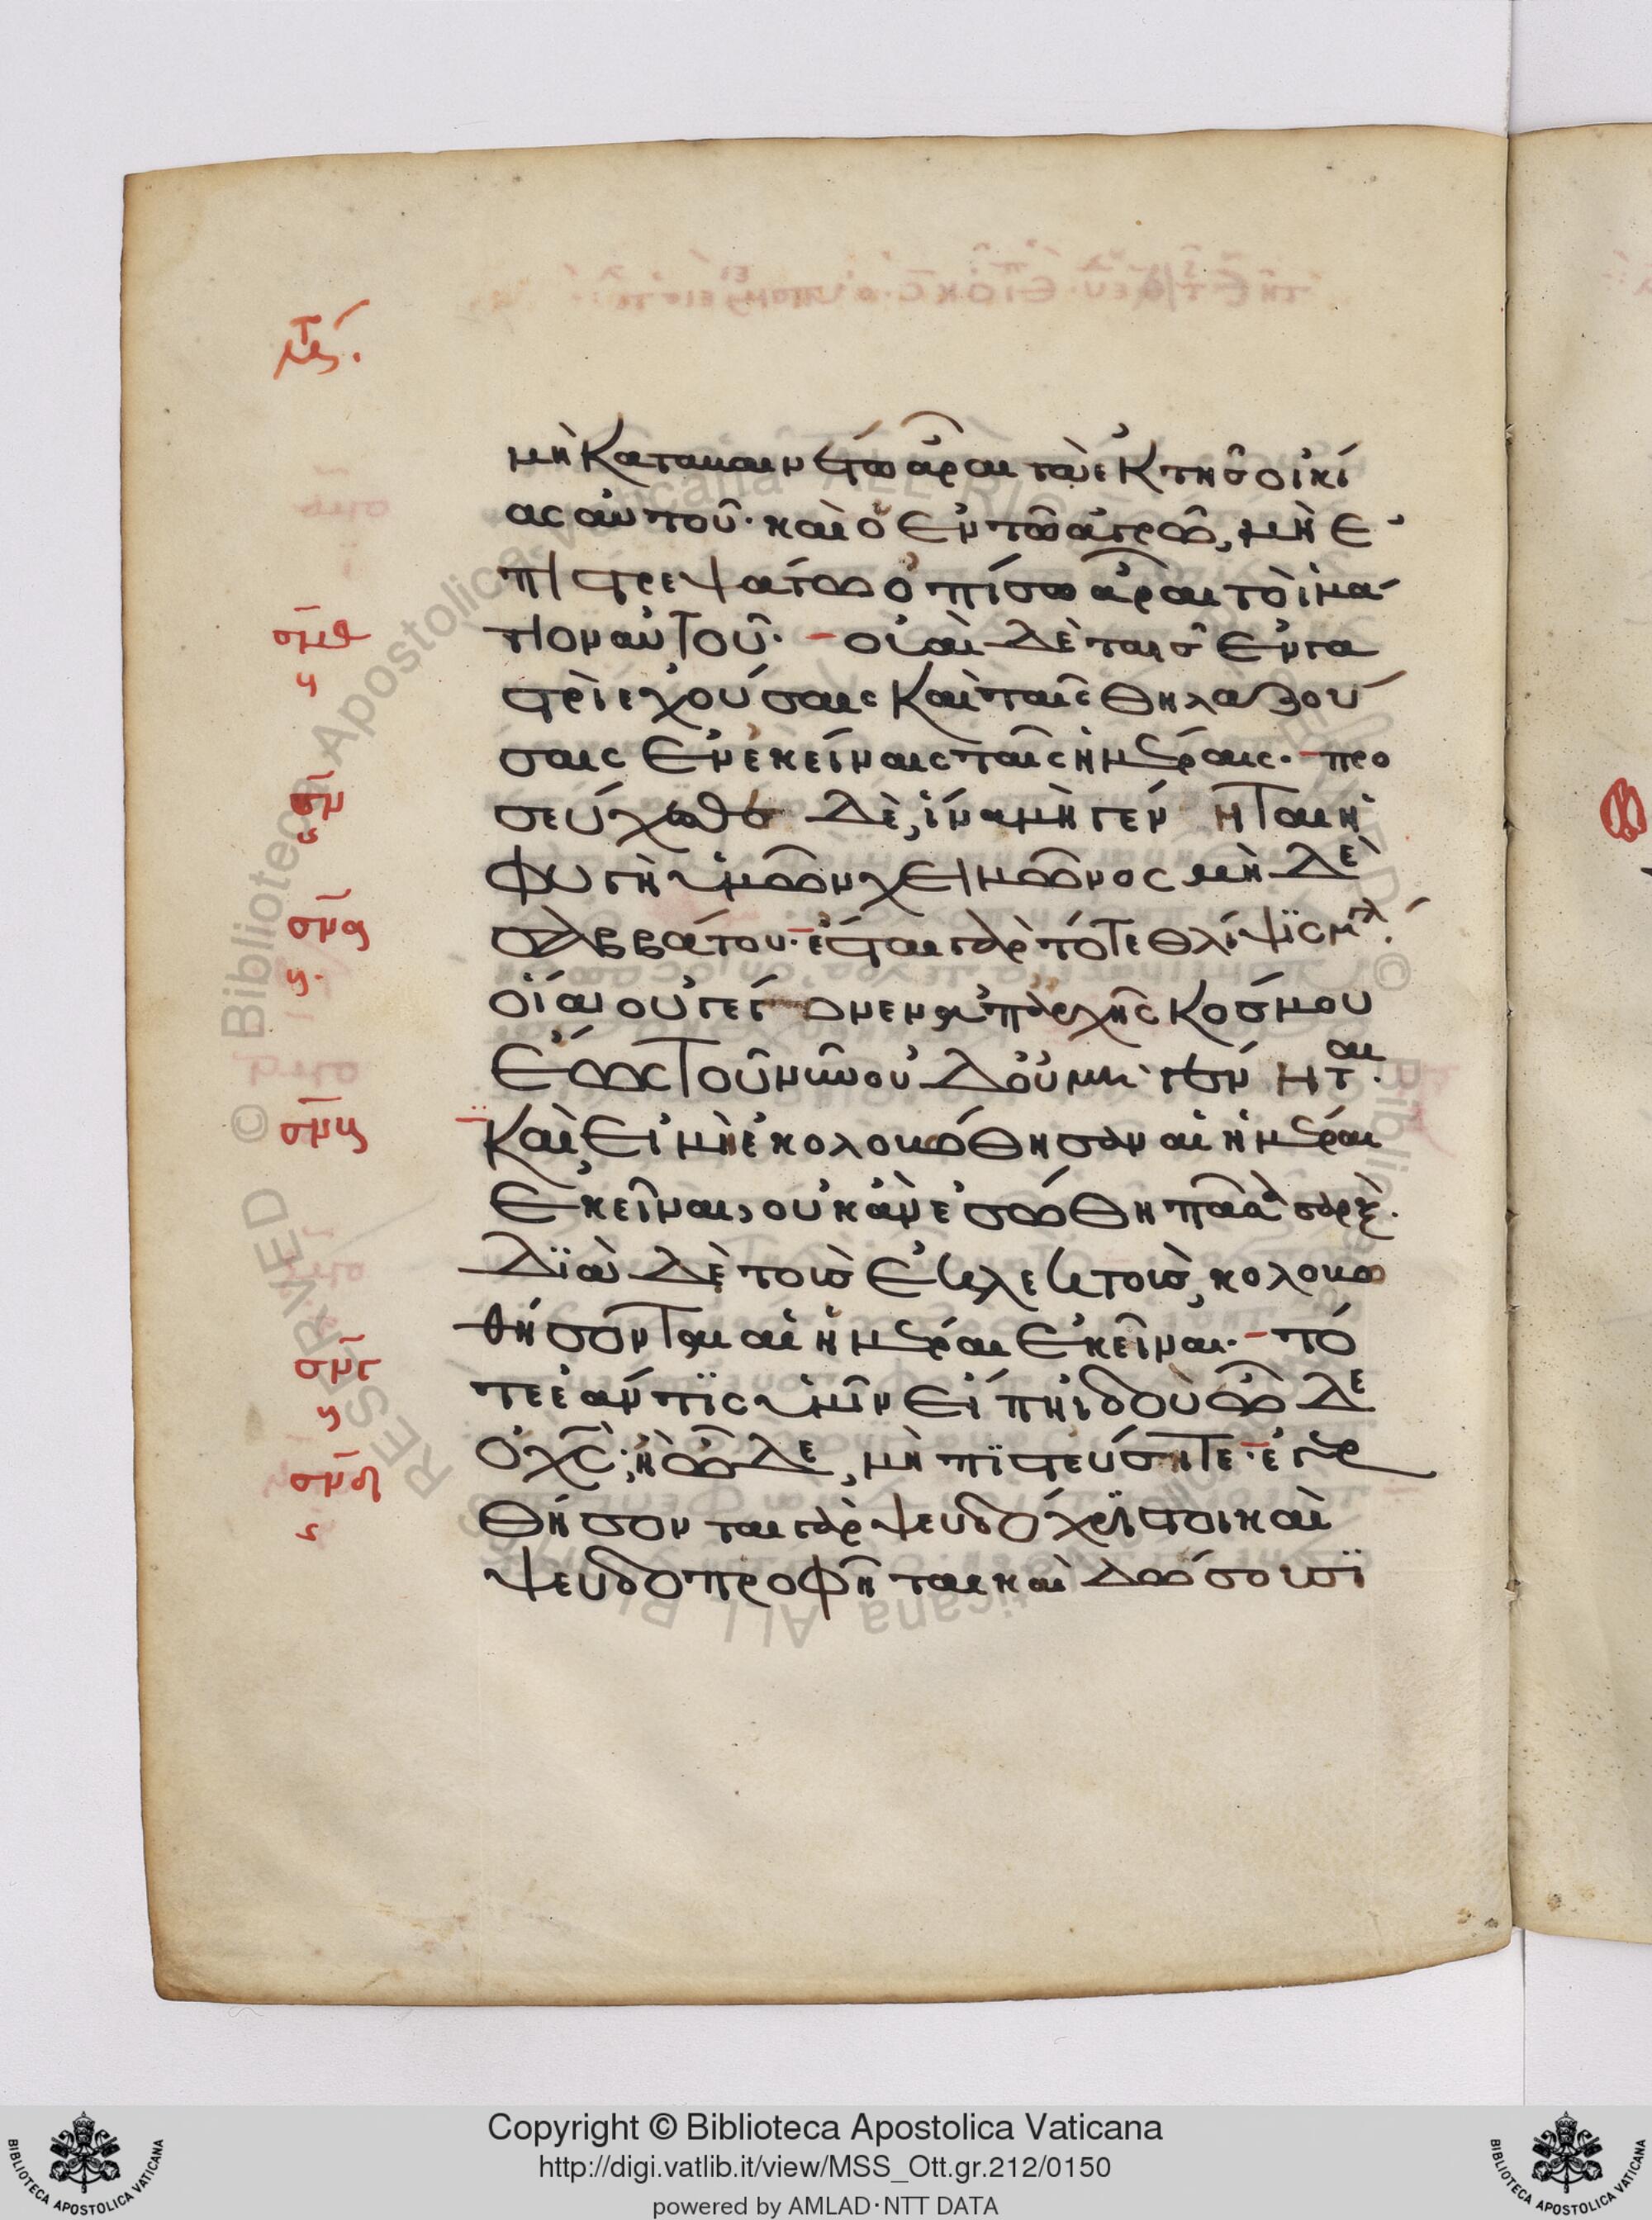 μὴ καταβαινέτω ἆραι τὰ ἐκ τῆς οἰκί
ας αὐτοῦ· καὶ ὁ ἐν τῶ ἀγρῶ, μὴ ἐ
πιστρεψάτω ὀπίσω ἆραι τὸ ἱμά
τιον αὐτοῦ· οὐαὶ δὲ ταῖς ἐν γα
στρὶ ἐχούσαις καὶ ταῖς θηλαζού
σαις ἐν ἐκείναις ταῖς ἡμέραις· προ
σεύχεσθε δὲ, ἵνα μὴ γένηται ἡ
φυγὴ ὑμῶν χειμῶνος μὴ δὲ
σαββάτου· ἔσται γὰρ τότε θλίψϊς μγλ́.
οἵα οὐ γέγονεν ἀπαρχῆς κόσμου
ἕως τοῦ νῦν οὐδουμὴ γένηται.
Καὶ εἰ μὴ ἐκολοβώθησαν αἱ ἡμέραι
ἐκεῖναι, οὐκ ἂν ἐσώθη πᾶσα σάρξ.
Διὰ δὲ τοὺς ἐκλεκτοὺς, κολοβω
θήσονται αἱ ἡμέραι ἐκεῖναι· τό
τε ἐάν τϊς ὑμῖν εἴπη ἰδοὺ ὧδε
ὁ χς̅, ἢ ὧδε, μὴ πιστεύσητε· ἐγερ
θήσονται γὰρ ψευδόχριστοι καὶ
ψευδοπροφῆται καὶ δώσουσϊ
σμθ
σν
σνα
σνβ
σνγ
σνδ
Copyright © Biblioteca Apostolica Vaticana
http://digi.vatlib.it/view/MSS_Ott.gr.212/0150
powered by AMLAD·NTT DATA
BIBLIOTECA APOSTOLICA VATICANA
BIBLIOTECA APOSTOLICA VATICANA